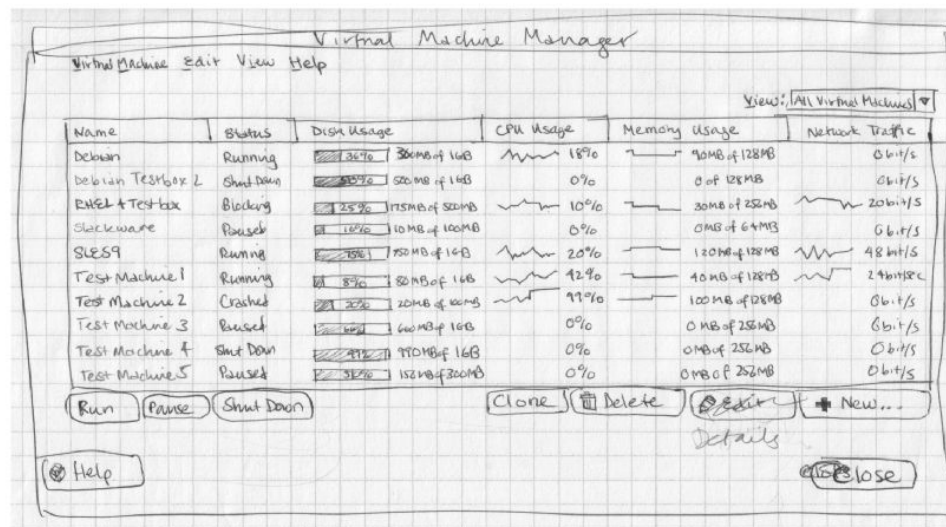 Virtual Machine Manager
Virtual Machine Edit View Help
View: All Virtual Machines
Name Status Disk Usage CPU Usage Memory Usage Network Traffic
Debian Running 36% 360MB of 1GB 18% 90MB of 128MB 0bit/s
Debian Testbox 2 Shut Down 50% 500MB of 1GB 0% 0 of 128MB 0bit/s
RHEL4 Testbox Blocking 25% 175MB of 500MB 10% 30MB of 256MB 20bit/s
Slackware Paused 10% 10MB of 100MB 0% 0MB of 64MB 0bit/s
SLES9 Running 75% 750MB of 1GB 20% 120MB of 128MB 48bit/s
Test Machine 1 Running 8% 80MB of 1GB 42% 40MB of 128MB 24bit/sec
Test Machine 2 Crashed 20% 20MB of 100MB 99% 100MB of 128MB 0bit/s
Test Machine 3 Paused 66% 600MB of 1GB 0% 0MB of 256MB 0bit/s
Test Machine 4 Shut Down 99% 990MB of 1GB 0% 0MB of 256MB 0bit/s
Test Machine 5 Paused 156MB of 300MB 0% 0MB of 252MB 0bit/s
Run Pause Shut Down Clone Delete Edit New...
Details
Help Close